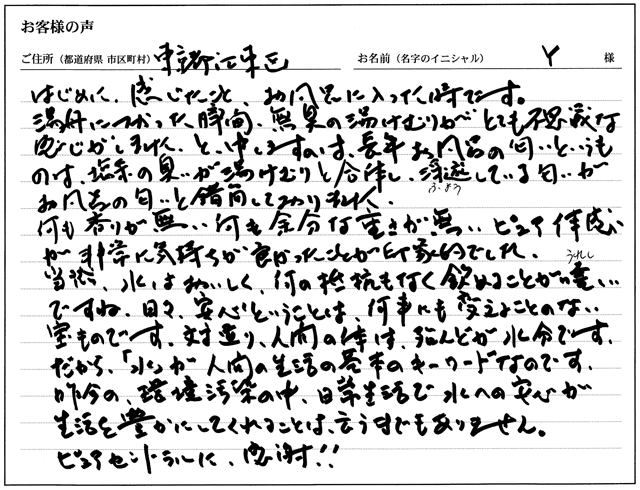 お客様の声
ご住所（都道府県 市区町村） 東京都江東区 お名前（名字のイニシャル） Y 様
はじめに、感じたこと、お風呂に入った時です。
湯舟につかった瞬間、無臭の湯けむりがとても不思議な
感じがしました。と、申しますのは、長年お風呂の匂いというも
のは、塩素の臭いが湯けむりと合体し、浮遊している匂いが
ふゆう
お風呂の匂いと錯覚しておりました。
何も香りが無い、何も余分な重さが無い、ピュア体感
が非常に気持ちが良かったことが印象的でした。
当然、水はおいしく、何の抵抗もなく飲めることが嬉しい
うれし
ですね。日々、安心ということは、何事にも変えることのない
宝ものです。対立り、人間の体は、殆んどが水分です。
だから、「水」が人間の生活の基本のキーワードなのです。
昨今の、環境汚染の中、日常生活で水への安心が
生活を豊かにしてくれることは、言うまでもありません。
ピュアセントラルに、感謝!!